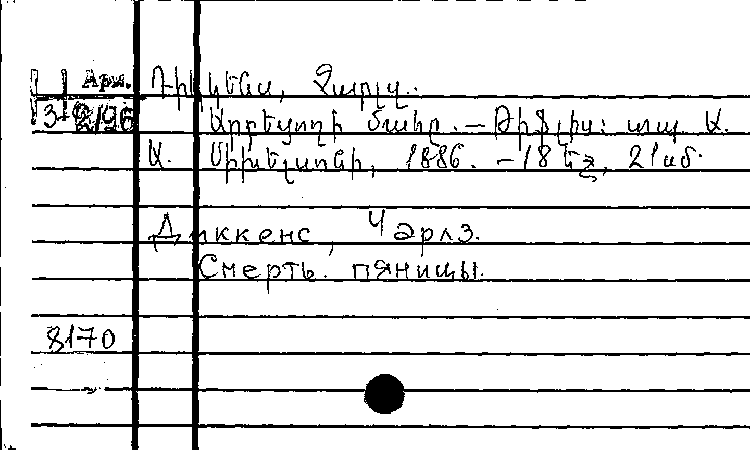 Арм. Դիկկենս, Չարլզ.
3 2/96 Արբեցողի մահը. – Թիֆլիս: տպ. Ա.
Ա. Միխելսոնի, 1886. – 18 եջ, 21սմ.
Диккенс, Чарлз.
Смерть пяницы.
8170